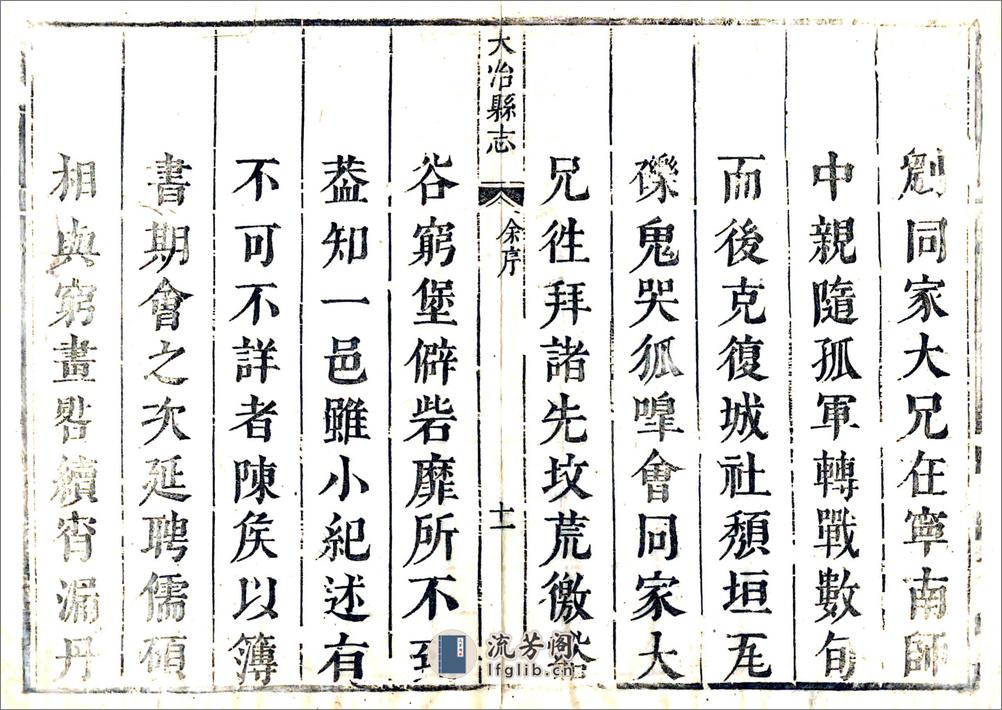 同家大兄在寧南師
中親隨孤軍轉戰數旬
而後克復城社頽垣瓦
礫鬼哭狐嘷會同家大
兄徃拜諸先坟荒徼
大冶縣志
余序
十一
谷窮堡僻砦靡所不到
葢知一邑雖小紀述有
不可不詳者陳侯以簿
書期會之次延聘儒碩
相與窮晝晷續宵漏丹
流芳阁
lfglib.cn